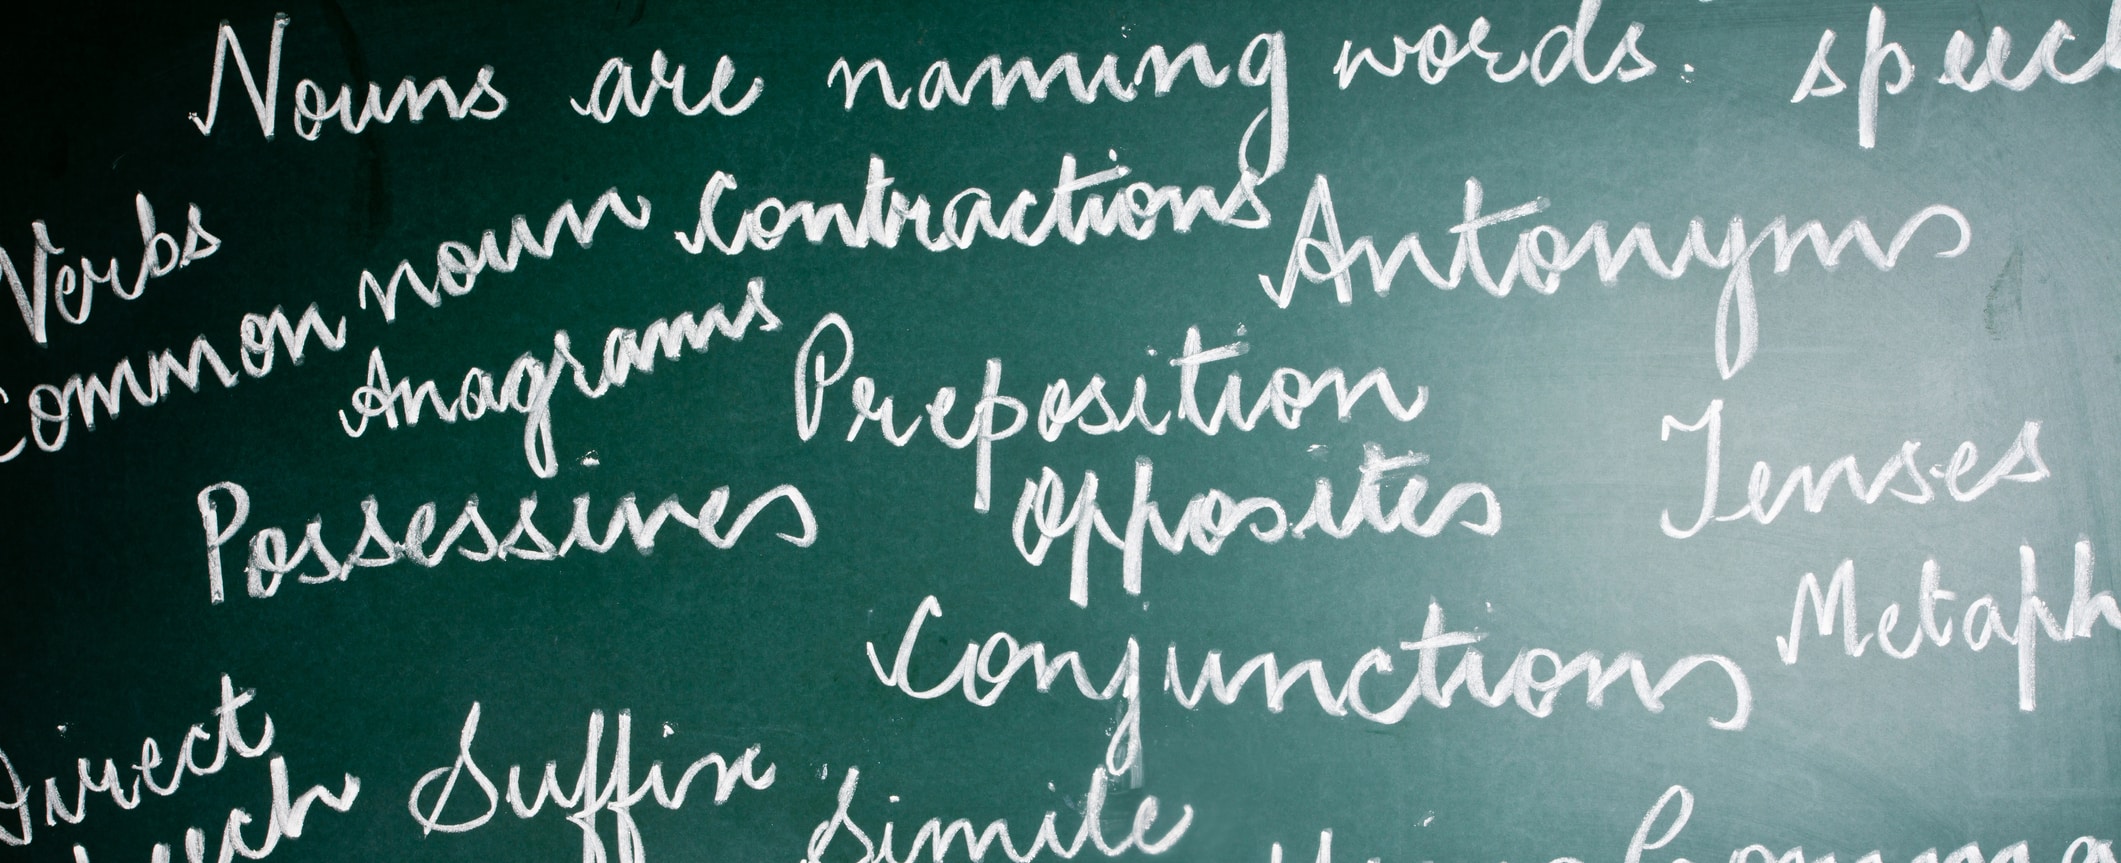 Nouns are naming words. speech
Verbs
Common noun Contractions Antonyms
Anagrams Preposition
Tenses
Possessives opposites
Conjunctions Metaph
Direct
Suffix simile